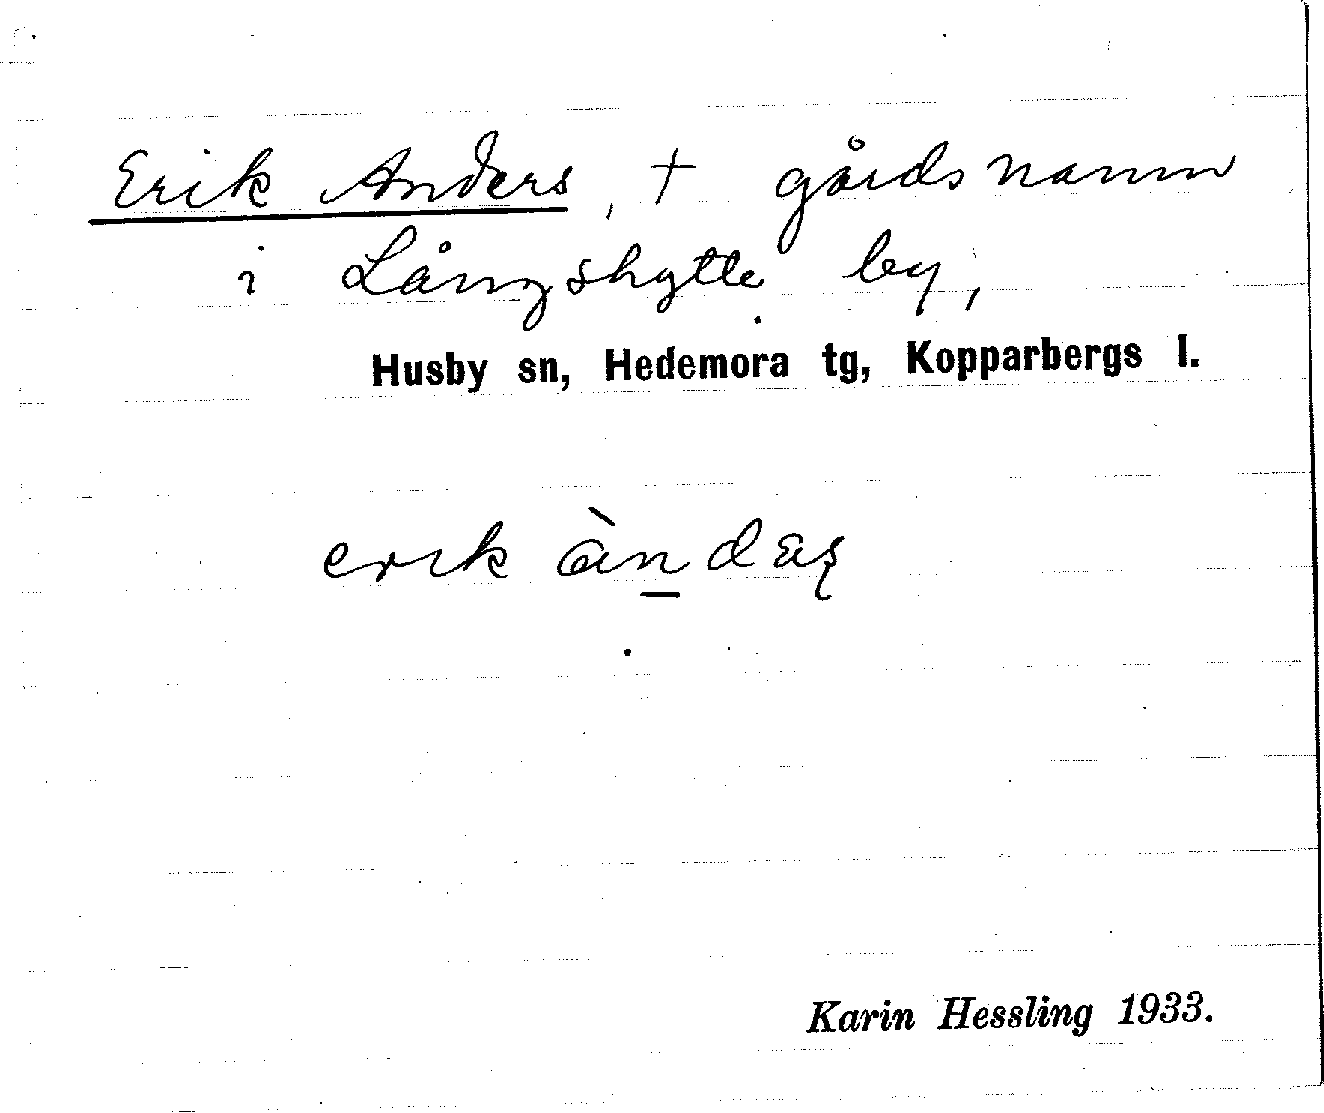 Erik Anders, † gårdsnamn
i Långshytte by,
Husby sn, Hedemora tg, Kopparbergs l.
erik
Karin Hessling 1933.